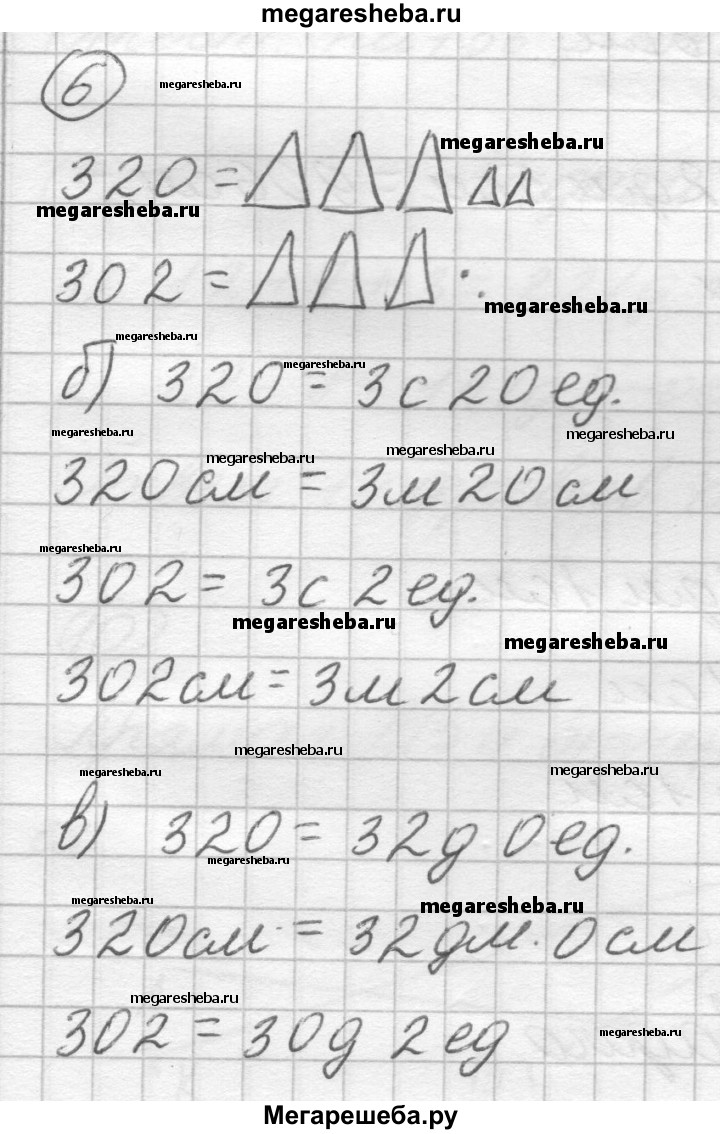 megaresheba.ru
6 megaresheba.ru
megaresheba.ru
320 =
megaresheba.ru
302 =
megaresheba.ru
megaresheba.ru
megaresheba.ru
б) 320 = 3с 20 ед.
megaresheba.ru megaresheba.ru
megaresheba.ru megaresheba.ru
320 см = 3м 20 см
megaresheba.ru
302 = 3с 2 ед.
megaresheba.ru
megaresheba.ru
302 см = 3м 2 см
megaresheba.ru
megaresheba.ru megaresheba.ru
в) 320 = 32д 0 ед.
megaresheba.ru
megaresheba.ru megaresheba.ru
320 см = 32 дм. 0 см
megaresheba.ru
302 = 30д 2 ед
megaresheba.ru
Мегарешеба.ру